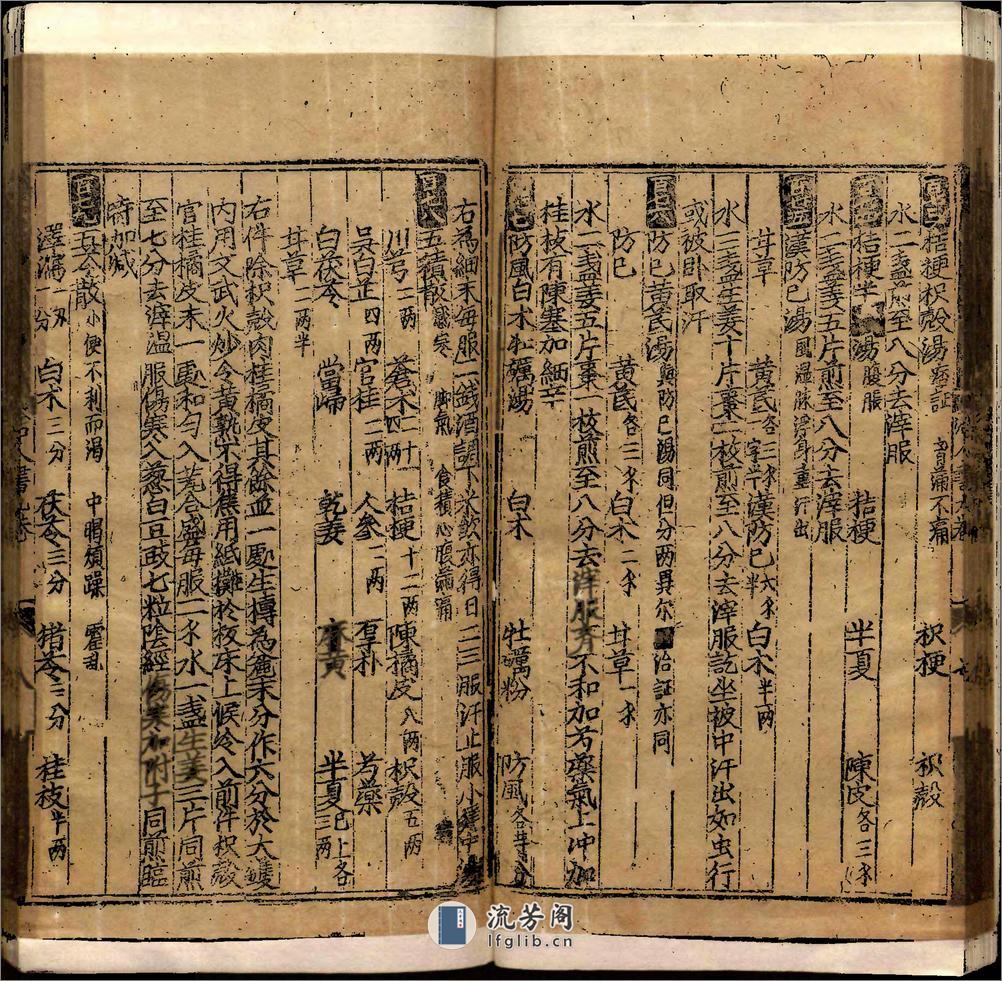 桔梗枳殼湯痞証 胷滿不痛 桔梗 枳殼
水二盞煎至八分去滓服
桔梗半夏湯腹脹 桔梗 半夏 陳皮各三錢
水二盞姜五片煎至八分去滓服
百廿五 漢防已湯風濕脉浮身重汗出
甘草 黃茋各三錢一字半 漢防已六錢半 白术半兩
水三盞生姜十片棗一枚煎至八分去滓服訖坐被中汗出如虫行
或被卧取汗
百廿六 防已黃茋湯與防已湯同但分两異尔 治証亦同
防已 黃茋各三錢 白术二錢 甘草一錢
水二盞姜五片棗一枚煎至八分去滓服 不和加芍藥氣上冲加
桂枝有陳寒加細辛
防風白术牡礪湯 白术 牡礪粉 防風各等分
右為細末每服一錢酒調下米飲亦得日二三服汗止服小建中湯
百廿八 五積散感寒 脚氣 食積心腹滿痛
川芎二两 蒼术二十四两 桔梗十二两 陳橘皮八两 枳殼五两
吳白芷四两 官桂二两 人參二两 厚朴 芍藥
白茯苓 當歸 乾姜 麻黃 半夏已上各三两
甘草二两半
右件除枳殼肉桂橘皮其餘並一處生擣為麄末分作六分於大䥶
內用文武火炒令黃熟不得焦用紙攤於板床上候冷入前件枳殼
官桂橘皮末一處和匀入甆合盛每服二錢水一盞生姜三片同煎
至七分去滓温服傷寒入葱白豆豉七粒陰經傷寒加附子同煎臨
時加減
百廿九 五令散小便不利而渴 中暍煩躁 霍乱
澤瀉一两一分 白术三分 茯苓三分 猪苓三分 桂枝半两
流芳阁
lfglib.cn